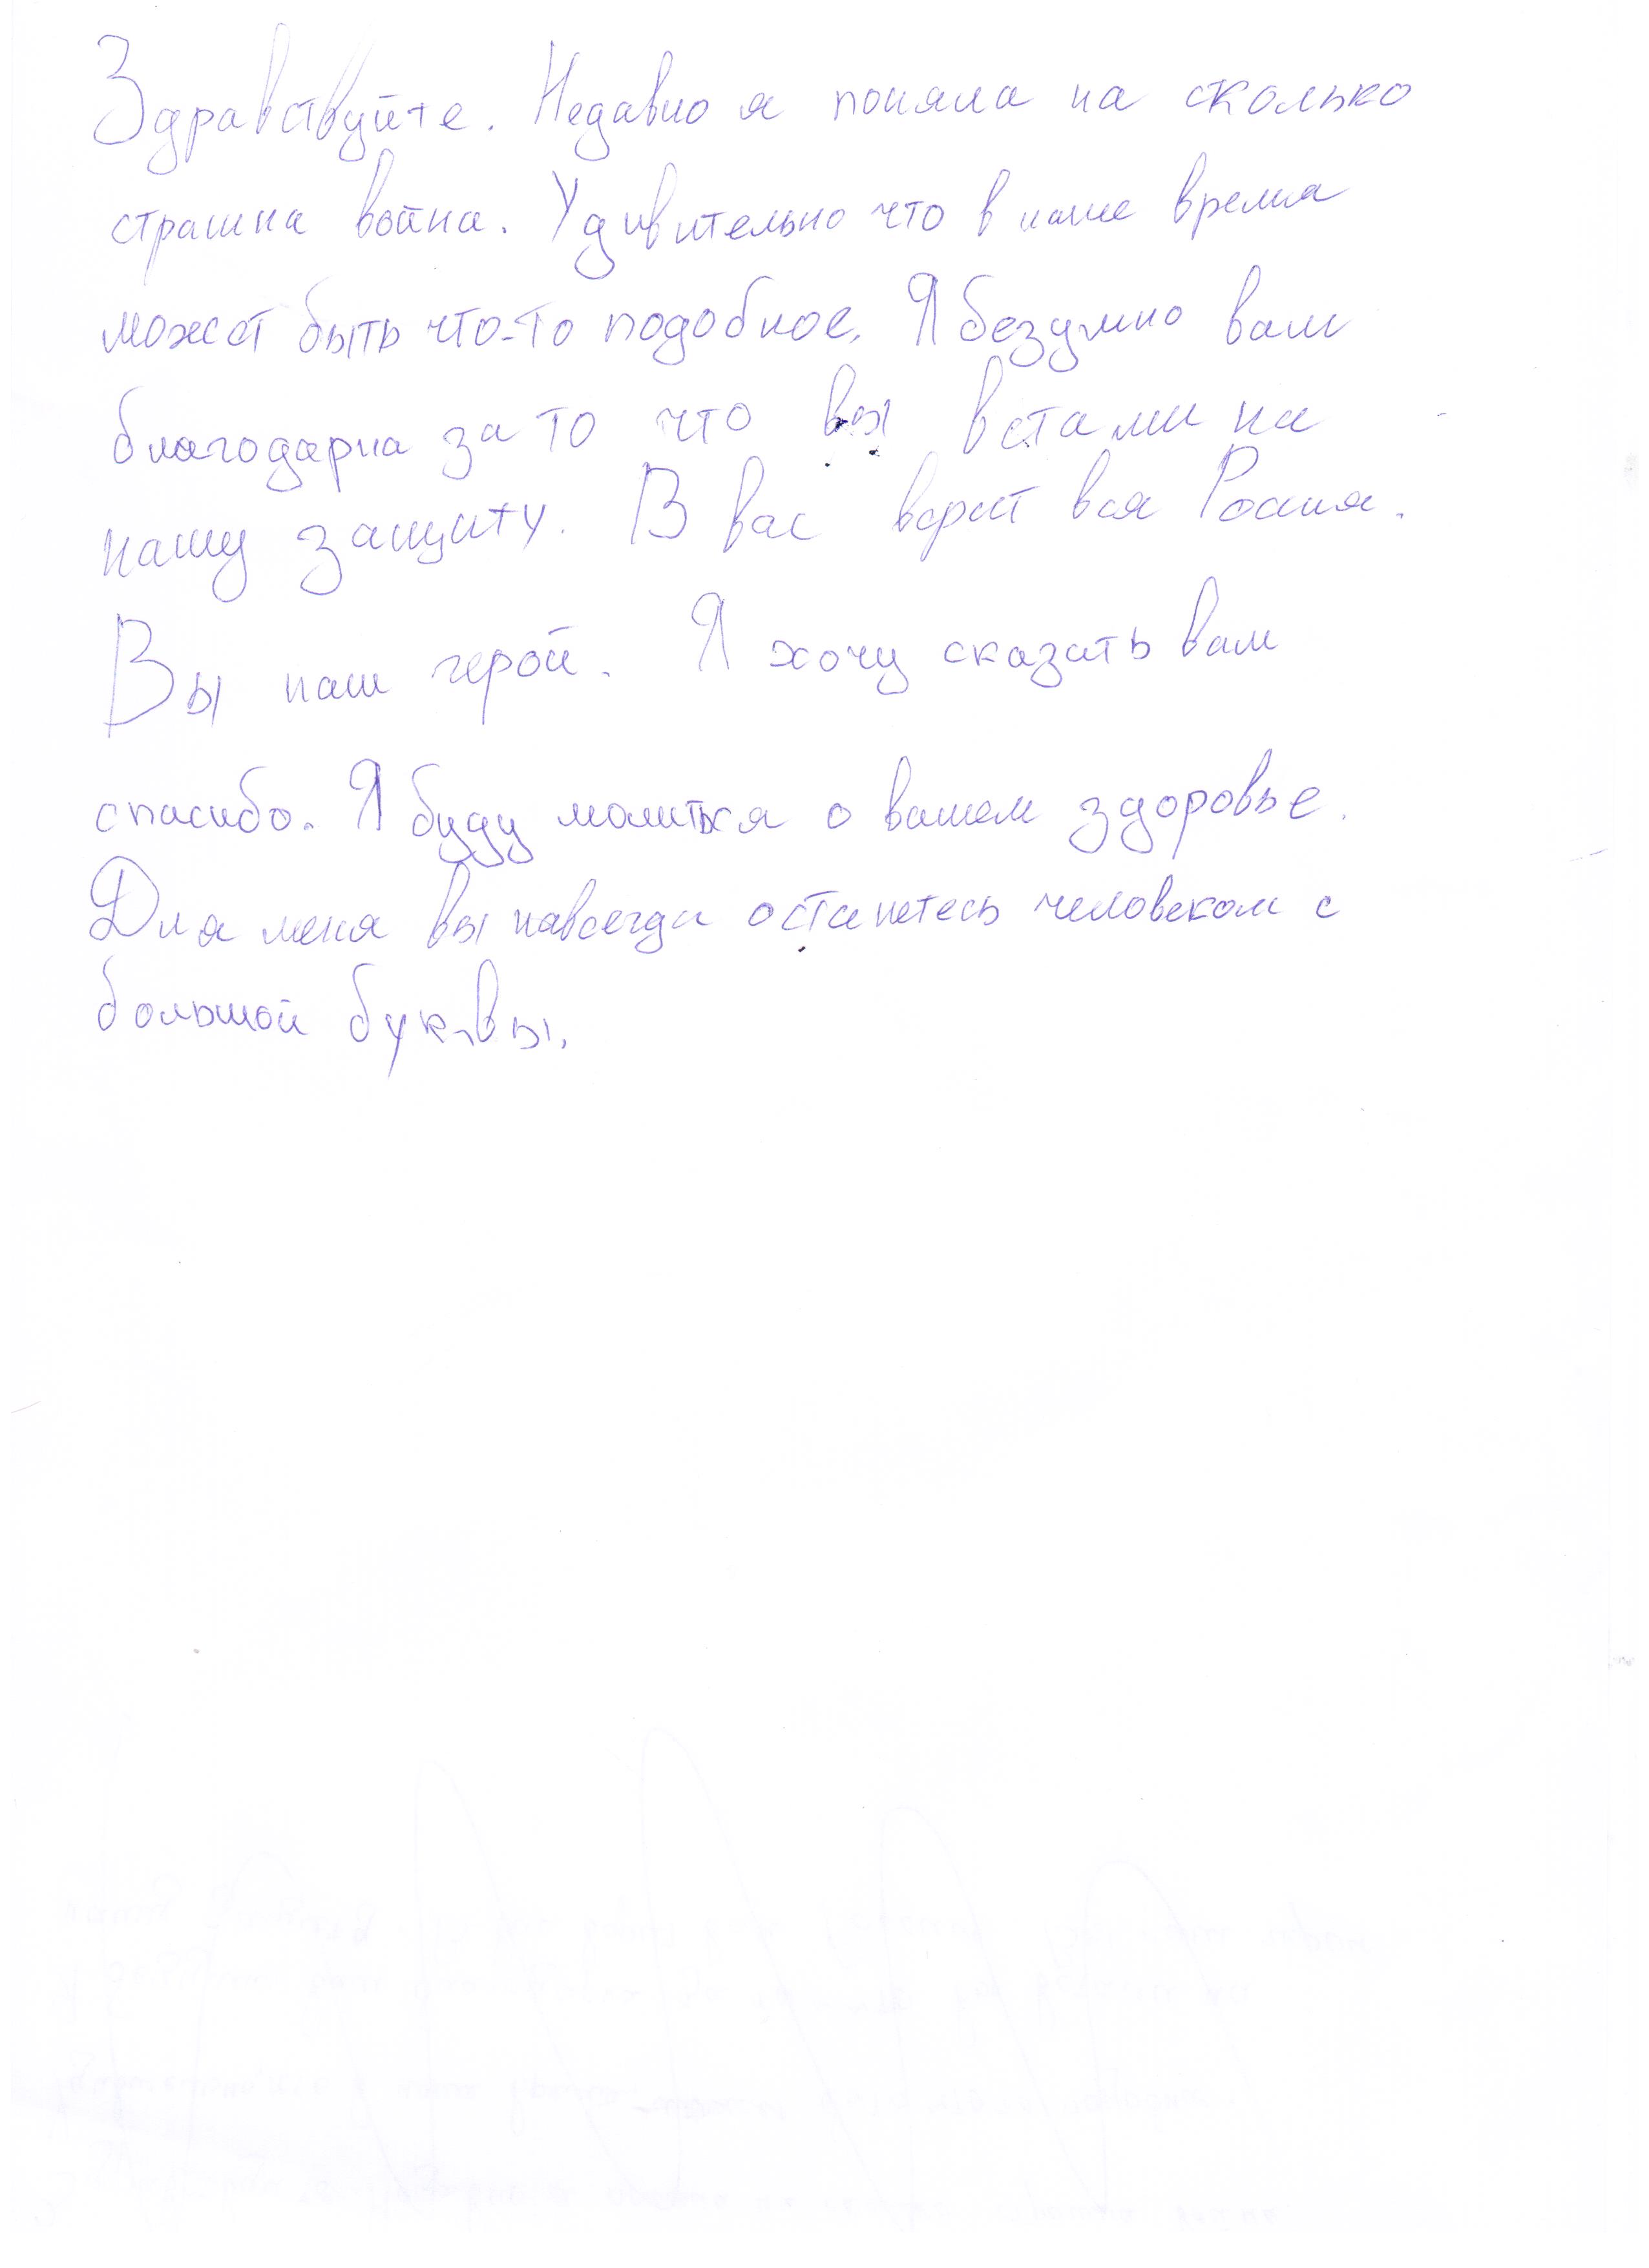 Здравствуйте. Недавно я поняла на сколько
страшна война. Удивительно что в наше время
может быть что-то подобное. Я безумно вам
благодарна за то что вы встали на
нашу защиту. В вас верит вся Россия.
Вы наш герой. Я хочу сказать вам
спасибо. Я буду молиться о вашем здоровье.
Для меня вы навсегда останетесь человеком с
большой буквы.